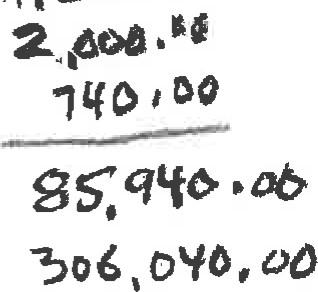 2,000.00
740.00
85,940.00
306,040.00